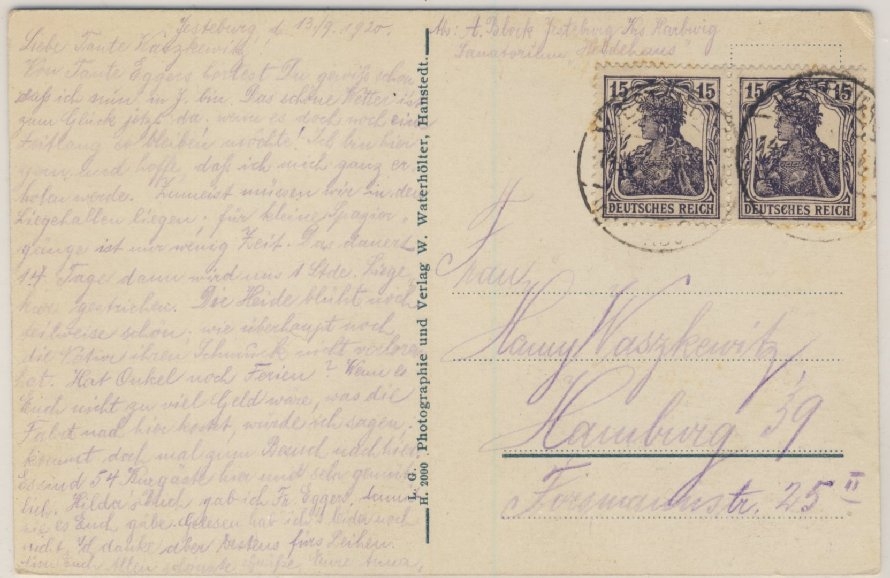 Jesteburg d. 13./9. 1920.
Liebe Tante Waszkewitz,
Von Tante Eggers hörtest Du gewiß schon
daß ich nun in J. bin. Das schöne Wetter ist
zum Glück jetzt da. wenn es doch noch eine
Zeitlang so bleiben möchte! Ich bin hier
gern und hoffe, daß ich mich ganz er
holen werde. Zumeist müssen wir in den
Liegehallen liegen. für kleine Spazier
gänge ist nur wenig Zeit. Das dauert
14 Tage dann wird uns 1 Stde. Liege
kur gestrichen. Die Heide blüht noch
teilweise schön. wie überhaupt noch
die Natur ihren Schmuck nicht verloren
hat. Hat Onkel noch Ferien? Wenn es
Euch nicht zu viel Geld wäre, was die
Fahrt nach hier kostet, würde ich sagen,
kommt doch mal zum Besuch nach hier.
Es sind 54 Kurgäste hier und sehr gemüt
lich. Hilda's Buch gab ich Fr. Eggers, damit
sie es Euch gäbe. Gelesen hab ich's leider noch
nicht. Ich danke aber bestens fürs Leihen.
Euch Allen Grüße, Eure Anna
L. G.
H. 2000 Photographie und Verlag W. Waterhölter, Hanstedt.
Abs: A. Block Jesteburg Krs Harburg
Sanatorium "Heidehaus"
15 15
DEUTSCHES REICH
15 15
DEUTSCHES REICH
Frau
Hanny Waszkewitz,
Hamburg 39
Forsmannstr. 25 II